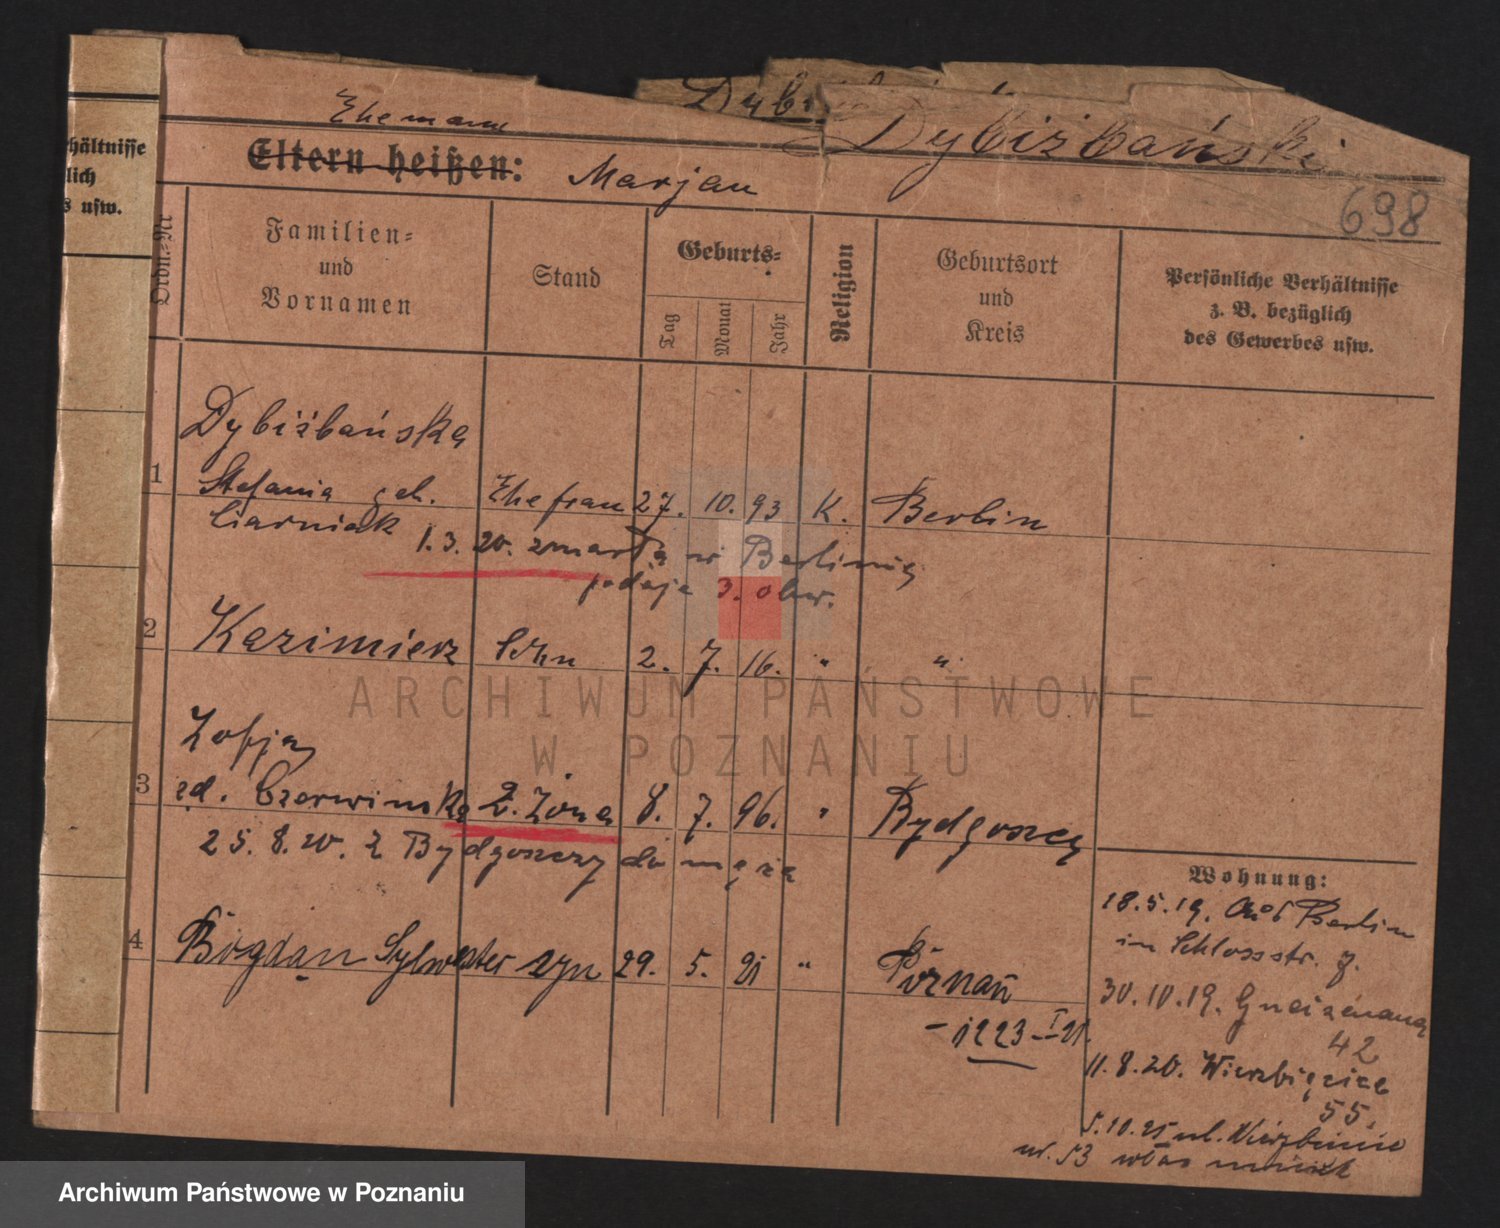 Dybiżbański
Ehemann
Eltern heißen: Marjan
698
hältnisse
lich
s usw.
Ordn.-Nr
Familien-
und
Vornamen
Stand
Geburts-
Tag
Monat
Jahr
Religion
Geburtsort
und
Kreis
Persönliche Verhältnisse
z. B. bezüglich
des Gewerbes usw.
Dybiżbańska
1 Stefania geb. Ehefrau 27. 10. 93 K. Berlin
Ciarniak
1.3.20. zmarła w Berlinie
podaje 3. obw.
2 Kazimierz Sohn 2. 7. 16. " "
Zofja
3 zd. Czerwińska 2. Żona 8. 7. 96. " Bydgoszcz
25.8.20. z Bydgoszczy do męża
4 Bogdan Sylwester syn 29. 5. 21 " Poznań
- 1223 - I 21.
Wohnung:
18.5.19. aus Berlin
in Schlossstr. 7.
30.10.19. Gneisenaua
42
11.8.20. Wierzbięcice
55.
5.10.25 ul. Wierzbięcice
nr. 53
ARCHIWUM PAŃSTWOWE
W POZNANIU
Archiwum Państwowe w Poznaniu